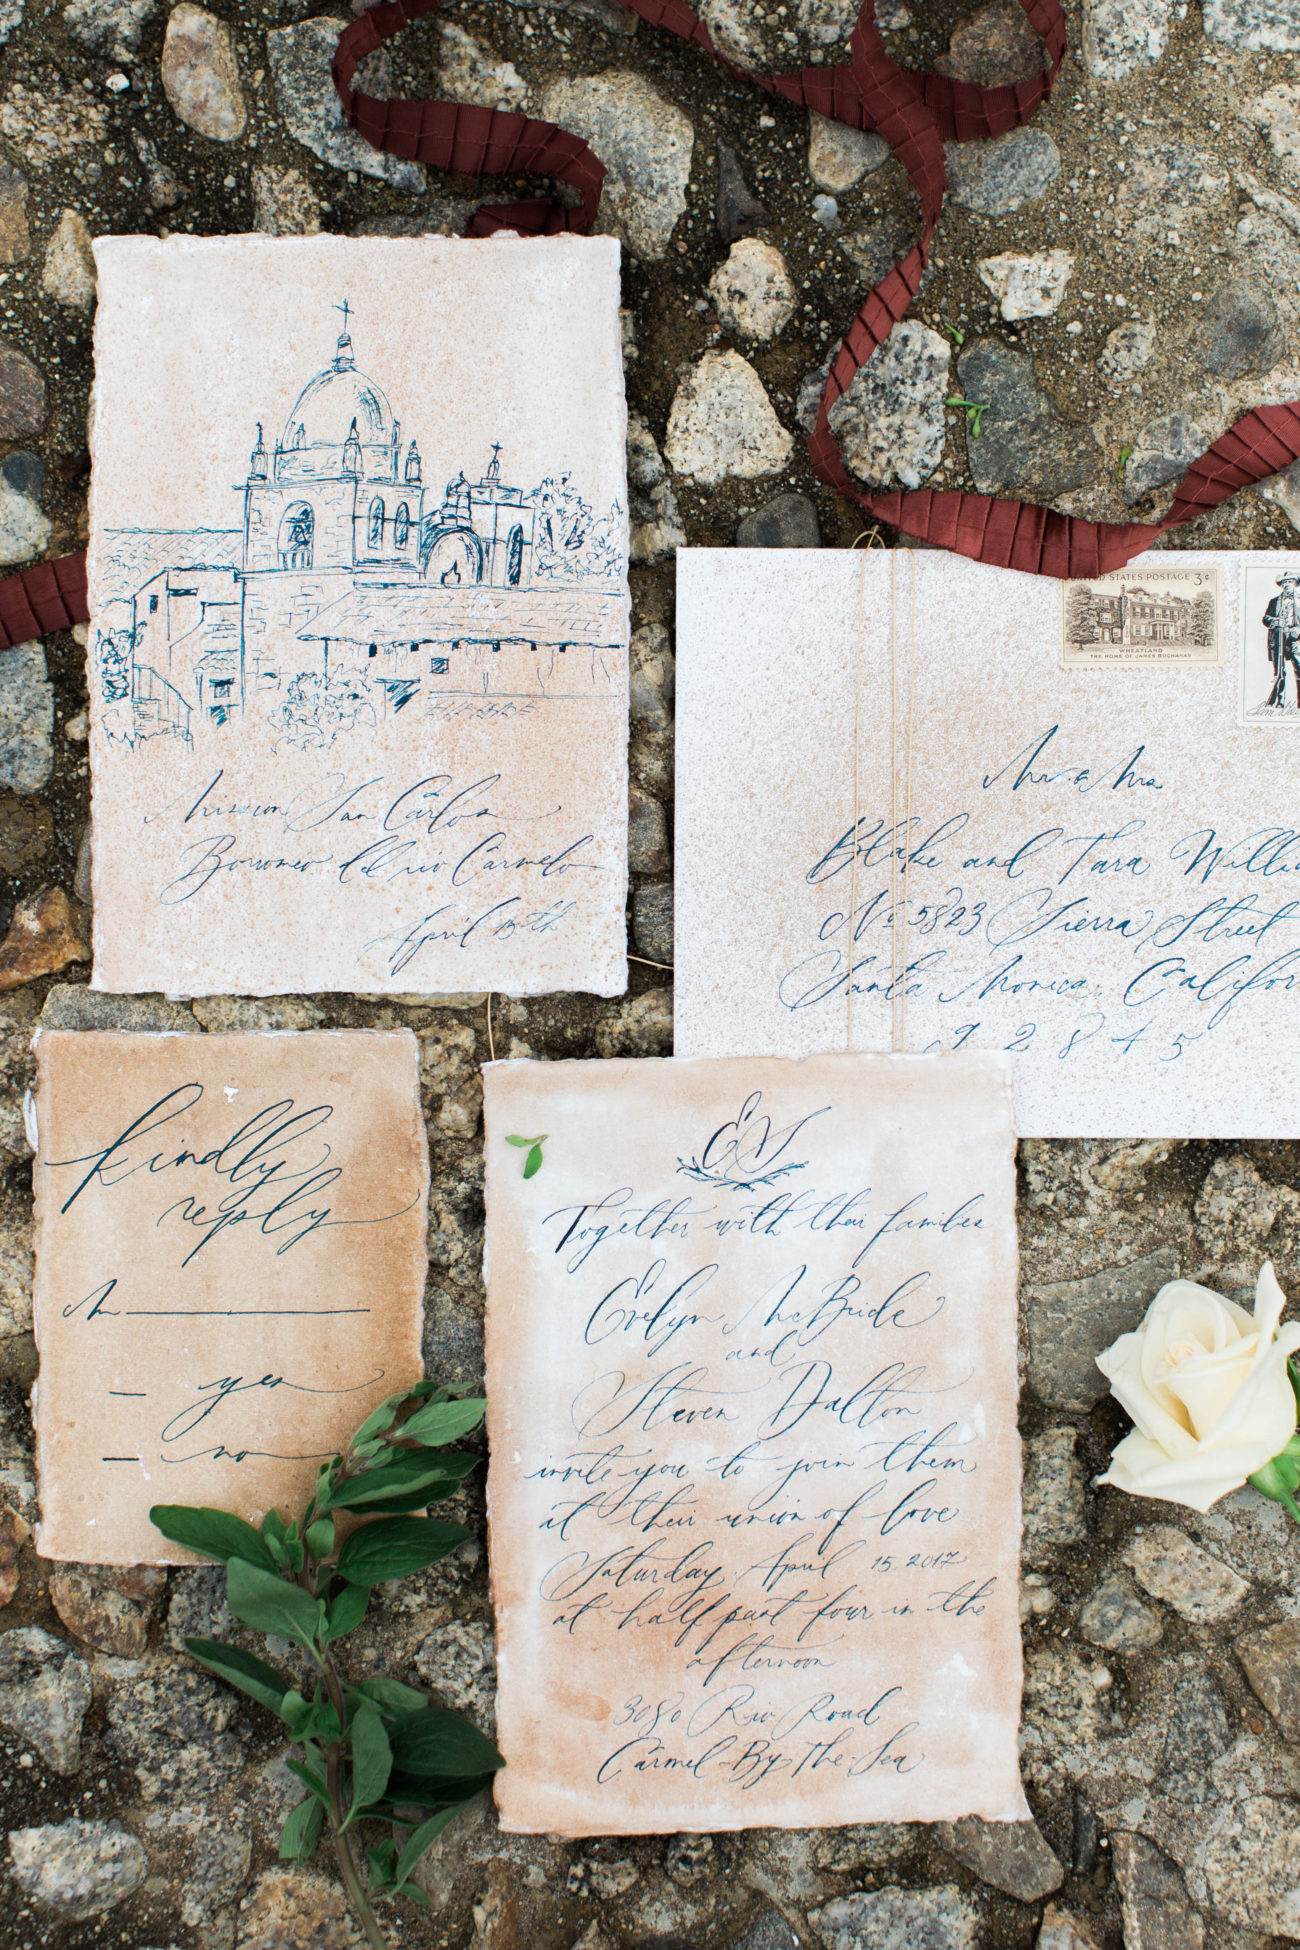 Mission San Carlos
Borromeo del rio Carmelo
April 15th
UNITED STATES POSTAGE 3¢
WHEATLAND
THE HOME OF JAMES BUCHANAN
Mr. & Mrs.
Blake and Tara
No 5823 Sierra Street
Santa Monica, Califor
92845
kindly
reply
M
yes
no
ES
Together with their families
Evelyn McBride
and
Steven Dalton
invite you to join them
at their union of love
Saturday, April 15. 2017
at half past four in the
afternoon
3080 Rio Road
Carmel-By-The-Sea